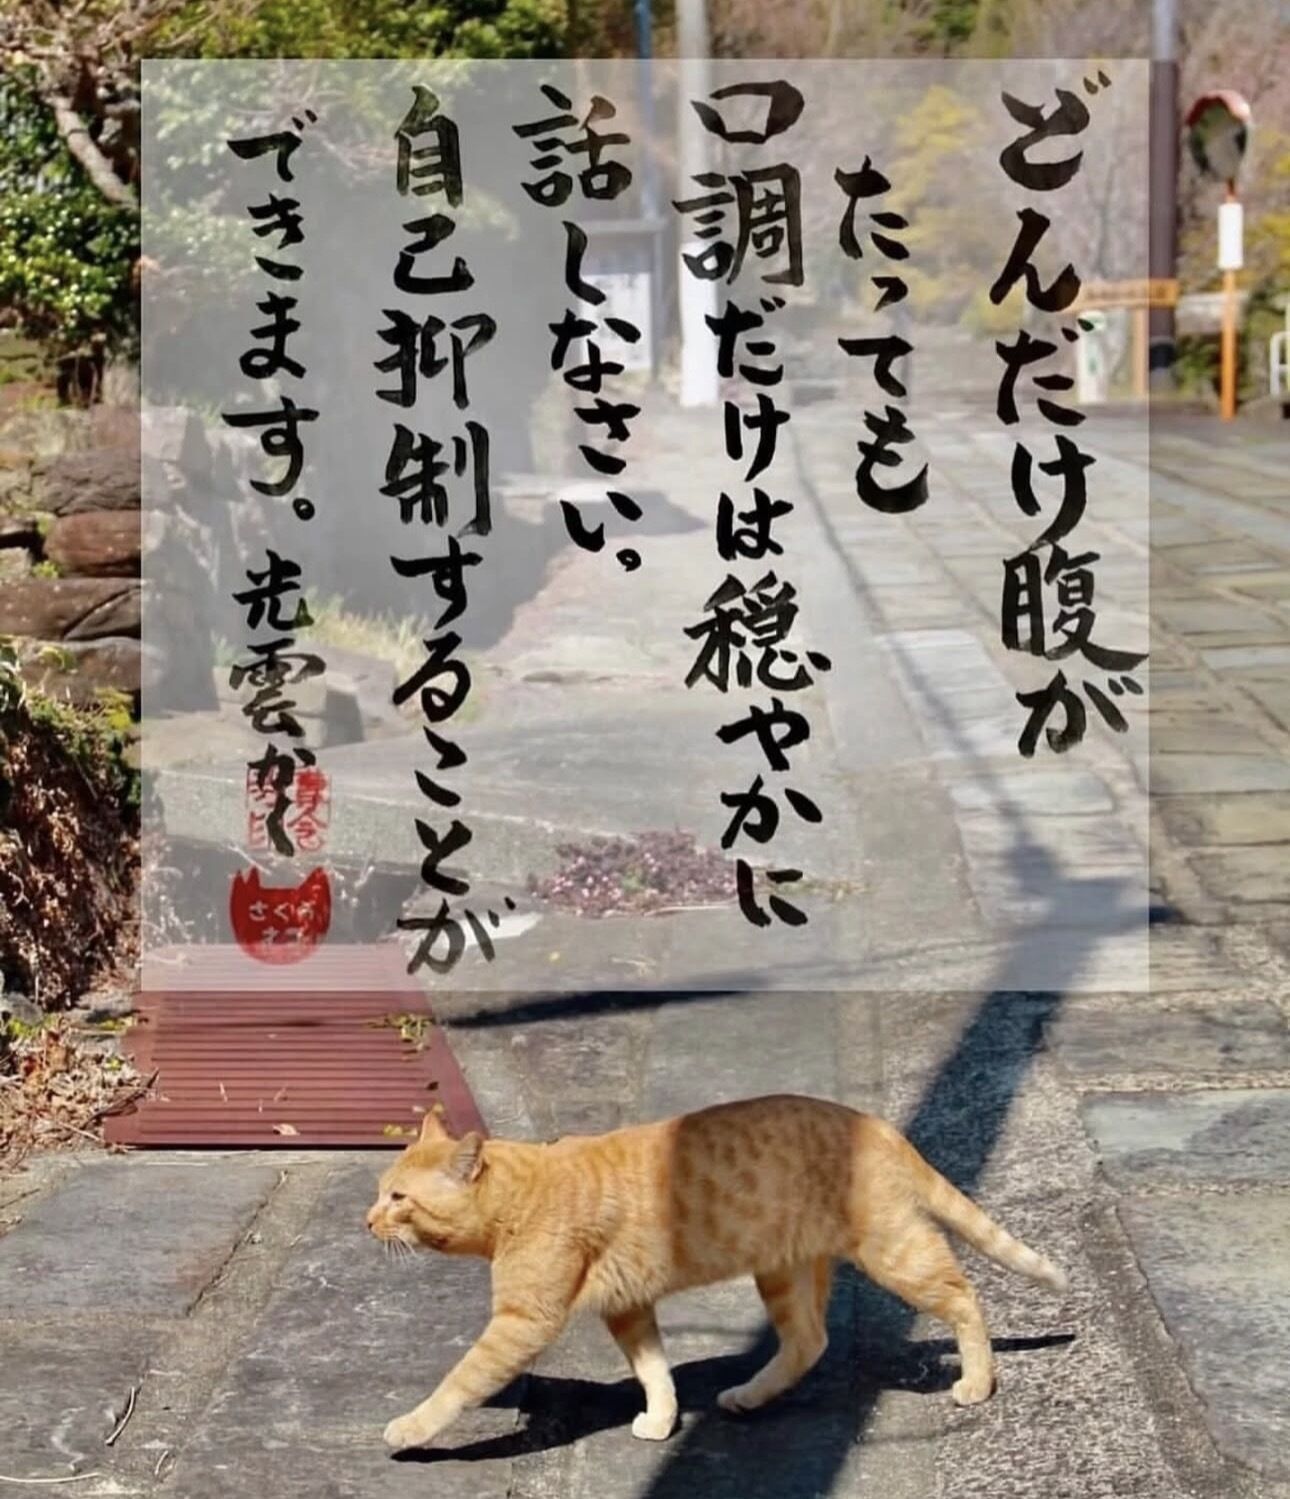 どんだけ腹が
たっても
口調だけは穏やかに
話しなさい。
自己抑制することが
できます。光雲かく
さくら
ネコ